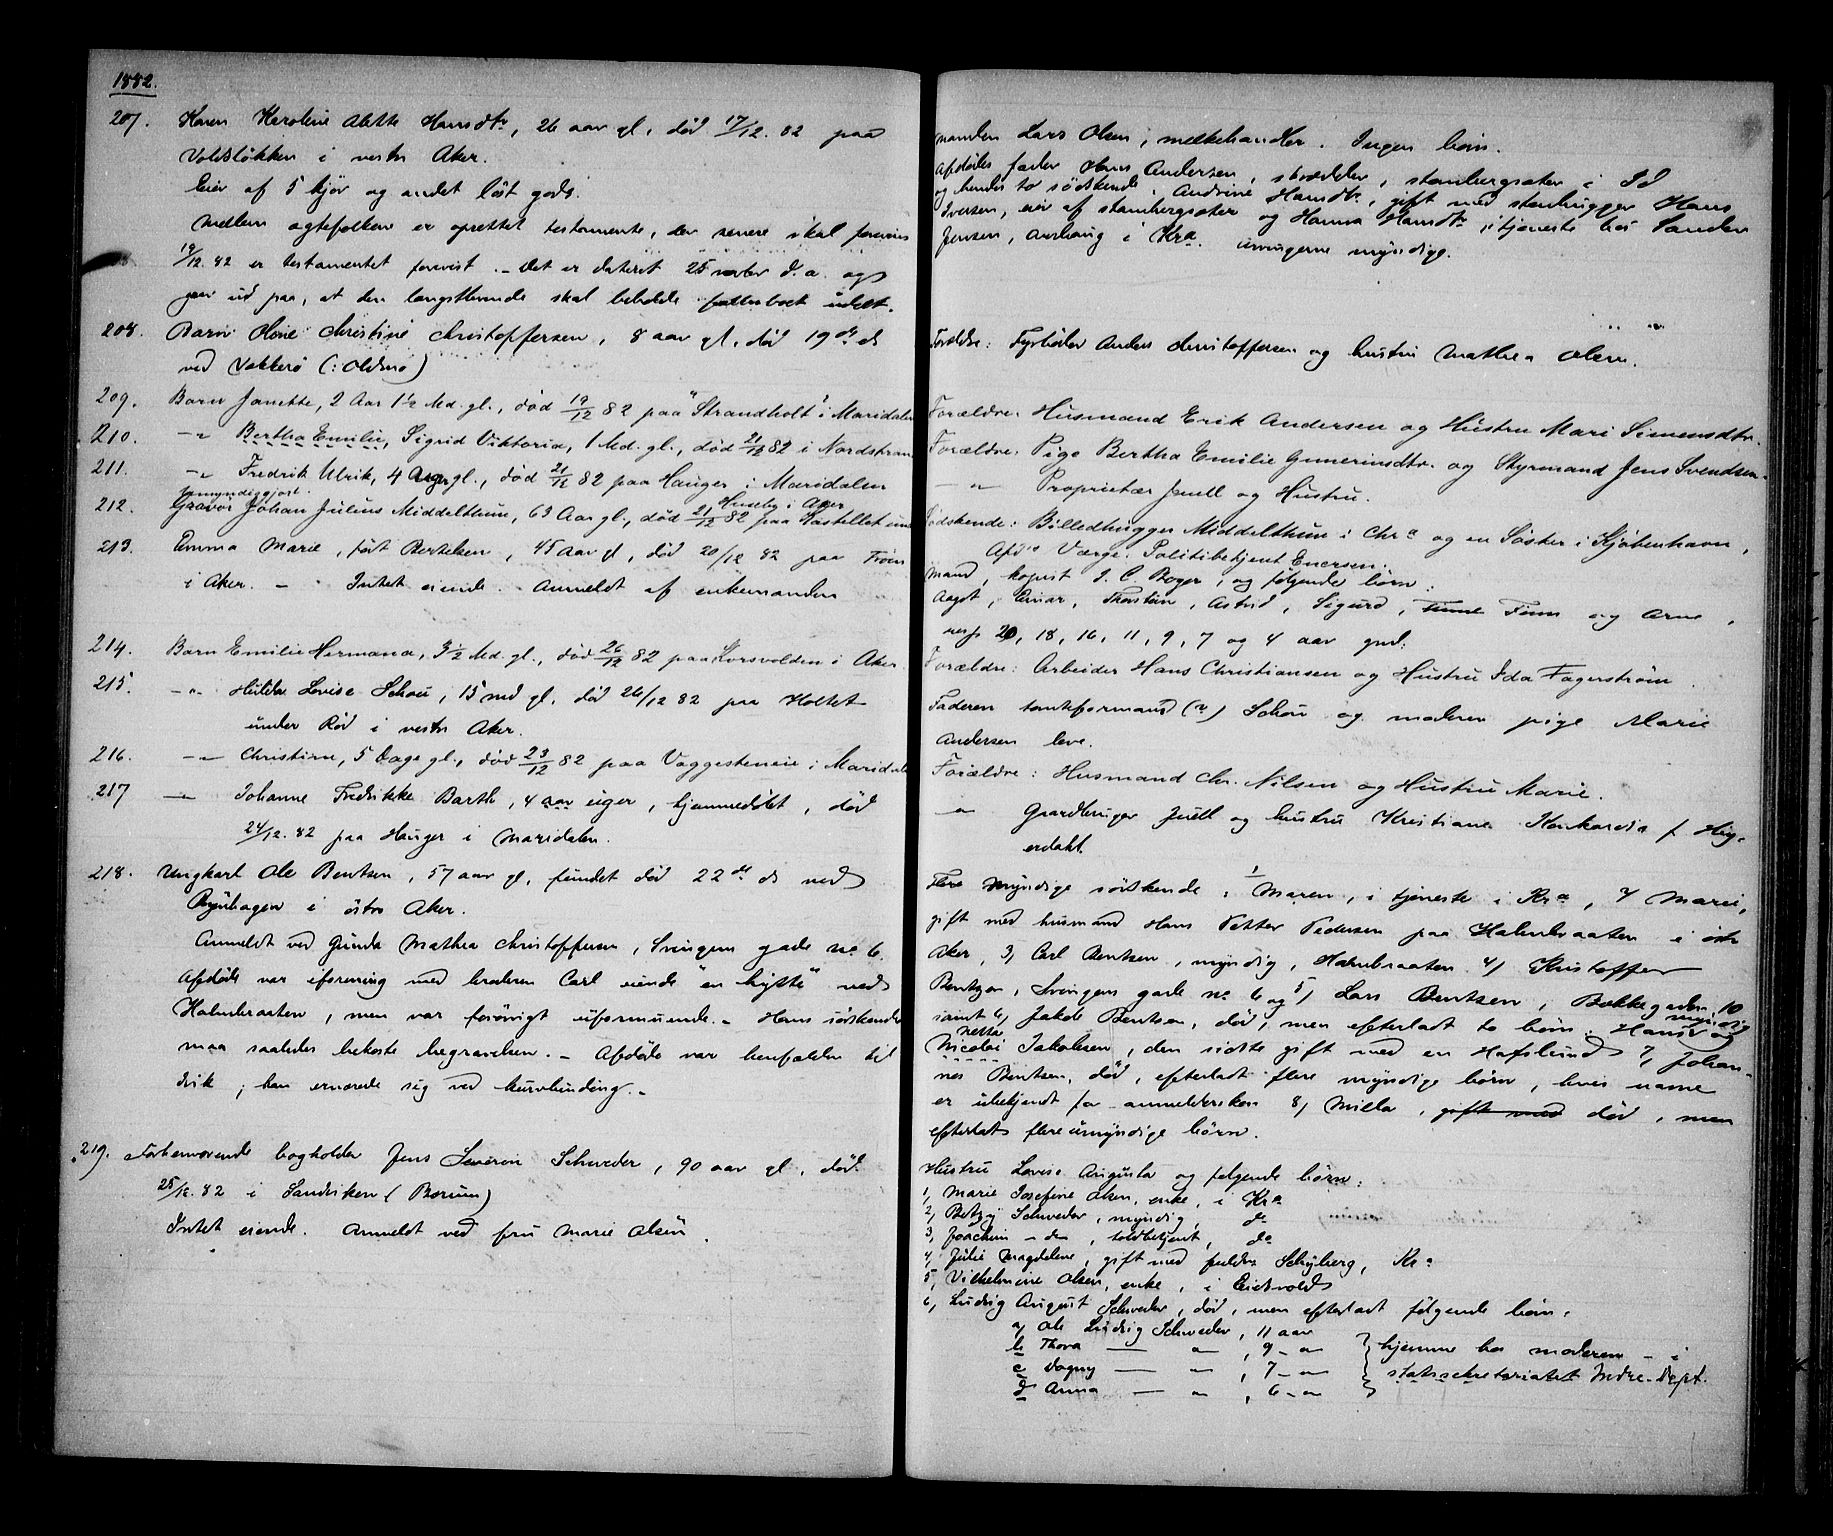 1882.
207. Karen Karoline Alette Hansdtr, 26 aar gl, død 17/12. 82 paa
Voldsløkken i vestre Aker.
Eier af 5 kjør og andet løst gods.
Mellem ægtefolkene er oprettet testamente, der senere skal forevises
19/12. 82 er testamentet forevist. - Det er dateret 25 novbr d. a. og
gaar ud paa, at den længstlevende skal beholde fællesboet udelt.
208. Barn Hovie Christine Christoffersen, 8 aar gl, død 19de ds
ved Vækkerø
209. Barn Janette, 2 Aar 1½ Md. gl., død 19/12 82 paa "Strandholt" i Maridalen
210. -"- Bertha Emilie, Sigrid Viktoria, 1 Md. gl., død 21/12 82 i Nordstrand
211. -"- Fredrik Ulrik, 4 Aar gl., død 21/12 82 paa Hauger i Maridalen
umyndiggjort Huseby i Aker
212. Gravør Johan Julius Middelthun, 63 Aar gl., død 21/12 82 paa Kastellet under
213. Emma Marie, født Bertelsen, 45 aar gl, død 20/12 82 paa Frøen
i Aker. - Intet eiende. Anmeldt af enkemanden
214. Barn Emilie Hermana, 3½ Md. gl., død 26/12 82 paa Korsvolden i Aker.
215. -"- Hulda Lovise Schou, 15 md gl, død 26/12 82 paa Holtet
under Rød i vestre Aker.
216. -"- Christian, 5 Dage gl., død 23/12 82 paa Vaggesteneie i Maridalen
217 -"- Johanne Fredrikke Barth, 4 aar uger, hjemmedøbt, død
24/12. 82 paa Hauger i Maridalen.
218. Ungkarl Ole Bentsen, 57 aar gl, fundet død 22de ds ved
Ryenhagen i østre Aker.
Anmeldt ved Gunda Mathea Christoffersen, Svingens gade no 6.
Afdøde var iforening med broderen Carl eiende "en hytte" ved
Holmbraaten, men var forøvrigt uformuende. - Hans søskende
maa saaledes bekoste begravelsen. - Afdøde var henfalden til
drik; han ernærede sig ved kurvbinding. -
219. Forhenværende bogholder Jens Severin Schweder, 90 aar gl, død
25/12. 82 i Sandviken (Bærum)
Intet eiende. Anmeldt ved fru Marie Olsen.
Manden Lars Olsen, melkehandler. Ingen børn.
Afdødes fader Hans Andersen, skrædder, Stenbergsæter i Id
og hendes to søskende, Andrine Hansdtr, gift med stenhugger Hans
Iversen, eier af Stenbergsæter og Hanna Hansdtr, i tjeneste hos Sanden
Jensen, i Kra. myndige.
Forældre: Fyrbøder Anders Christoffersen og hustru Mathea Olsen.
Forældre: Husmand Erik Andersen og Hustru Mari Simensdtr.
Forældre: Pige Bertha Emilie Gunerinsdtr. og Styrmand Jens Svendsen.
-"- Proprietær Juell og Hustru.
Sødskende: Billedhugger Middelthun i Chra og en Søster i Kjøbenhavn,
Afdøs Værge: Politibetjent Enersen.
Mand, kopist J. C. Boger, og følgende børn:
Aagot, Einar, Thorstein, Astrid, Sigurd, Finn og Arne,
resp 20, 18, 16, 11, 9, 7 og 4 aar gml.
Forældre: Arbeider Hans Christiansen og Hustru Ida Fagerstrøm.
Faderen tomteformand (?) Schou og moderen pige Marie
Andersen leve.
Forældre: Husmand Chr. Nilsen og Hustru Marie.
" Gaardbruger Juell og hustru Kristiane Konkordia f. Hey-
erdahl.
Flere myndige søskende: 1) Maren, i tjeneste i Kra, 2) Marie,
gift med husmand Hans Petter Pedersen paa Holmbraaten i østre
Aker, 3) Carl Bentsen, myndig, Holmbraaten. 4) Kristoffer
Bentzen, Svingens gade no 6 og 5) Lars Bentsen, Bakkegaden 10
samt 6) Jakob Bentsen, død, men efterladt to børn: Hans myndig og
Nette
Nicolai Jakobsen, den sidste gift med en Hafslund 7) Johan-
nes Bentsen, død, efterladt flere myndige børn, hvis navne
er ubekjendt for anmeldersken 8) Milla, gift med død, men
efterladt flere umyndige børn.
Hustru Lovise Augusta og følgende børn:
1) Marie Josefine Olsen, enke, i Kra
2) Betzy Schweder, myndig, do
3) Joachim - do , toldbetjent, do
4) Julie Magdalene, gift med fuldm Schiøberg, Kra
5) Vilhelmine Olsen, enke, i Eidsvold
6) Ludvig August Schweder, død, men efterladt følgende børn:
a) Ole Ludvig Schweder, 11 aar
b Thora — " , 9 - "
c Dagny — " , 7 - "
d Anna — " , 6 - "
hjemme hos moderen - i
statssekretariatet Indre-Dept.